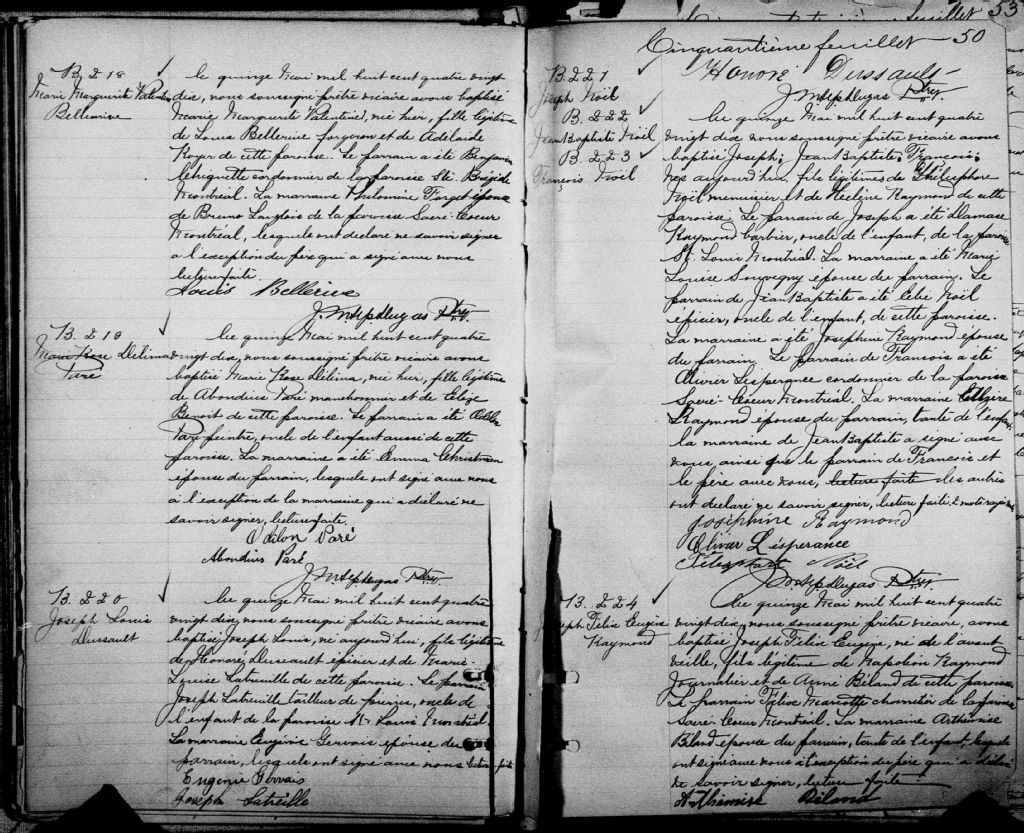 B. 218
Marie Marguerite Valentine
Bellerive
Le quinze Mai mil huit cent quatre vingt
dix, nous soussigné prêtre vicaire avons baptisé
Marie Marguerite Valentine, née hier, fille légitime
de Louis Bellerive forgeron et de Adelaide
Royer de cette paroisse. Le parrain a été Benjamin
Choquette cordonnier de la paroisse Ste Brigide
Montréal. La marraine Philomène Forget épouse
de Bruno Langlois de la paroisse Sacré-Coeur
Montréal, lesquels ont déclaré ne savoir signer
à l'exception du père qui a signé avec nous
lecture faite
Louis Bellerive
J. M. Jos. Dugas Ptre
B. 219
Marie Rose Delima
Paré
Le quinze Mai mil huit cent quatre
vingt dix, nous soussigné prêtre vicaire avons
baptisé Marie Rose Délima, née hier, fille légitime
de Abondius Paré manchonnier et de Elise
Benoit de cette paroisse. Le parrain a été Odilon
Paré peintre, oncle de l'enfant aussi de cette
paroisse. La marraine a été Emma Christman
épouse du parrain, lesquels ont signé avec nous
à l'exception de la marraine qui a déclaré ne
savoir signer, lecture faite.
Odilon Paré
Abondius Paré
J. M. Jos. Dugas Ptre
B. 220
Joseph Louis
Dussault
Le quinze Mai mil huit cent quatre
vingt dix, nous soussigné prêtre vicaire avons
baptisé Joseph Louis, né aujourd'hui, fils légitime
de Honoré Dussault épicier et de Marie
Louise Latreille de cette paroisse. Le parrain
Joseph Latreille tailleur de pierre, oncle de
l'enfant de la paroisse St Louis Montréal
La marraine Eugénie Gervais épouse du
parrain, lesquels ont signé avec nous lecture faite
Eugenie Gervais
Joseph Latreille
feuillet 53
Cinquantième feuillet 50
Honoré Dussault
J. M. Jos. Dugas Ptre
B. 221
Joseph Noël
B. 222
Jean Baptiste Noël
B. 223
François Noël
Le quinze Mai mil huit cent quatre
vingt dix nous soussigné prêtre vicaire avons
baptisé Joseph; Jean Baptiste; François;
nés aujourd'hui, fils légitimes de Théléphore
Noël menuisier et de Hélène Raymond de cette
paroisse. Le parrain de Joseph a été Damase
Raymond barbier, oncle de l'enfant, de la paroisse
St. Louis Montréal. La marraine a été Marie
Louise épouse du parrain. Le
parrain de Jean Baptiste a été Noël
épicier, oncle de l'enfant, de cette paroisse.
La marraine a été Josephine Raymond épouse
du parrain. Le parrain de François a été
Olivier Lesperance cordonnier de la paroisse
Sacré-Coeur Montréal. La marraine
Raymond épouse du parrain, tante de l'enfant
la marraine de Jean Baptiste a signé avec
nous, ainsi que le parrain de François et
le père avec nous, lecture faite les autres
ont déclaré ne savoir signer, lecture faite. 2 mots rayés
Joséphine Raymond
Olivier L'ésperance
Noël
J. M. Jos. Dugas Ptre
B. 224
Joseph Félix Eugène
Raymond
Le quinze Mai mil huit cent quatre
vingt dix, nous soussigné prêtre vicaire, avons
baptisé Joseph Félix Eugène, né de l'avant
veille, fils légitime de Napoléon Raymond
Journalier et de Anne Béland de cette paroisse
Le parrain Félix Mariotte de la paroisse
Sacré-Coeur Montréal. La marraine Arthémise
Béland épouse du parrain, tante de l'enfant, laquelle
ont signé avec nous à l'exception du père qui a déclaré
ne savoir signer, lecture faite
Arthémise Béland